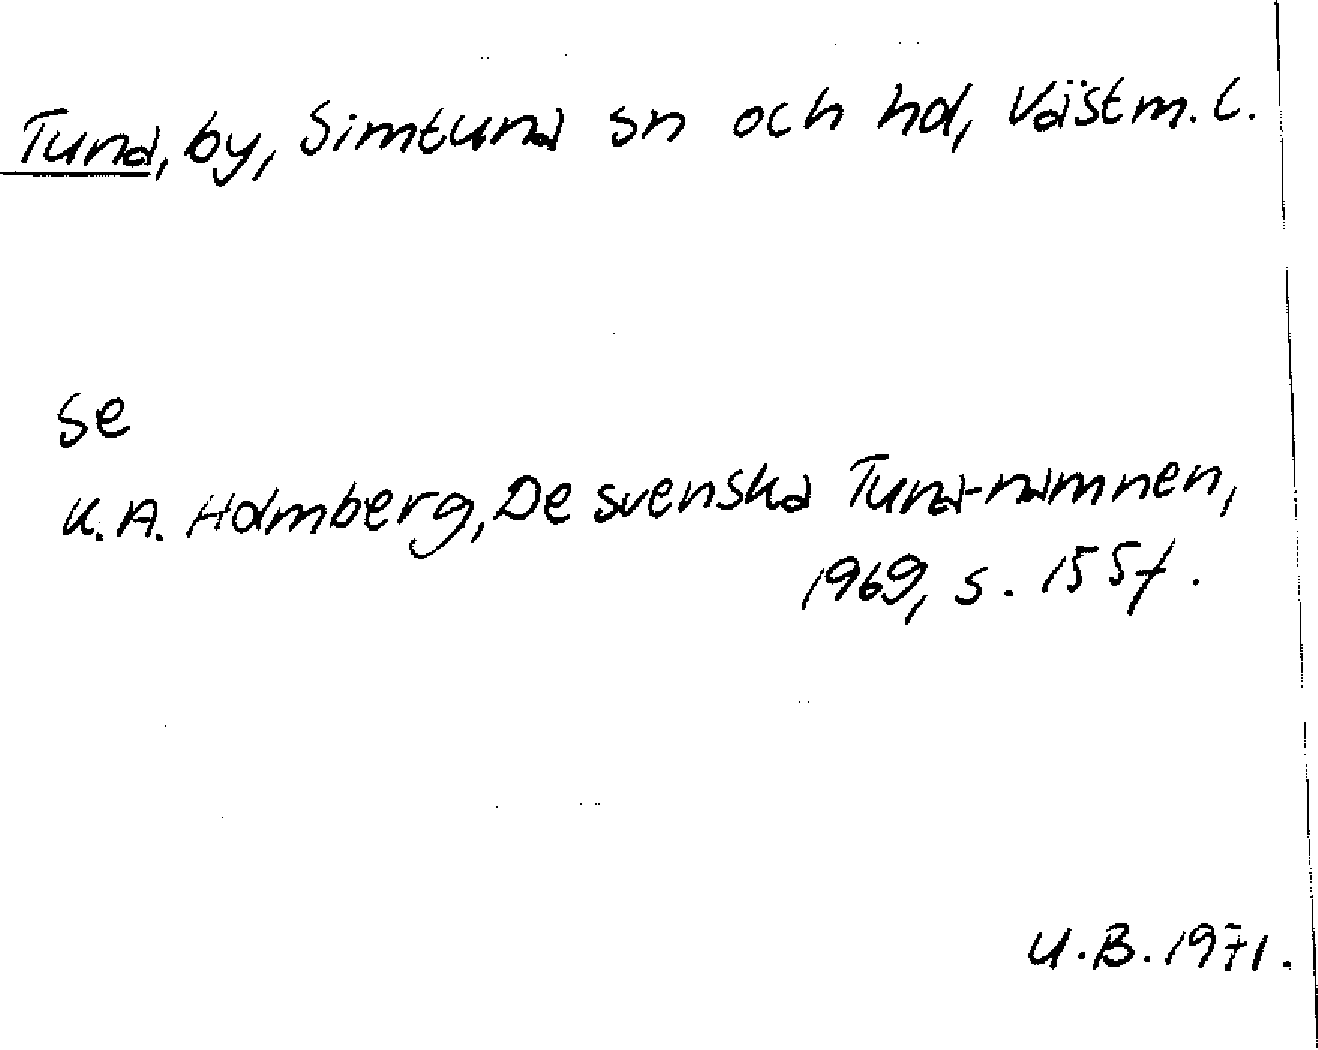 Tuna, by, Simtuna sn och hd, Västm. l.
se
K. A. Holmberg, De svenska Tuna-namnen,
1969, s. 155 f.
U.B. 1971.